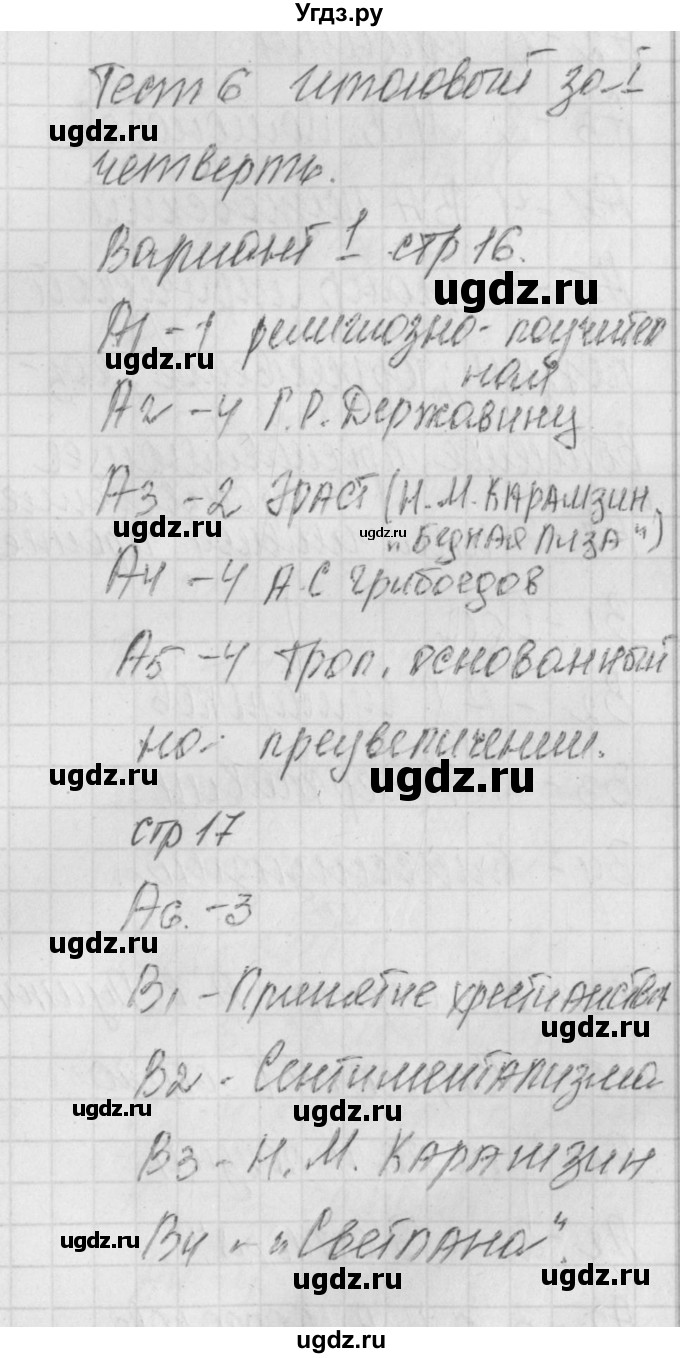 Угдз.ру
Тест 6 итоговый за I
ugdz.ru
четверть.
Вариант 1 стр 16.
ugdz.ru
А1 - 1 религиозно- поучител
ugdz.ru
ной
А2 - 4 Г.Р. Державину
А3 - 2 Эраст (Н.М. Карамзин
ugdz.ru ugdz.ru
„Бедная Лиза")
А4 - 4 А.С Грибоедов
А5 - 4 Троп, основанный
на преувеличении.
ugdz.ru ugdz.ru
стр 17
А6. - 3
ugdz.ru
В1 - Принятие христианства
ugdz.ru
В2 - Сентиментализма
ugdz.ru ugdz.ru
В3 - Н. М. Карамзин
ugdz.ru
В4 - „Светлана"
ugdz.ru ugdz.ru
ugdz.ru